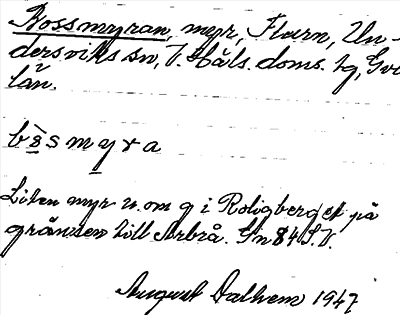 Bossmyran, myr, Flarn, Un-
dersviks sn, V. Häls. doms. tg, Gvl.
län.
bòsmyra
Liten myr n. om g i Roligberget på
gränsen till Arbrå. Gn 84 S.V.
August Dalhem 1947